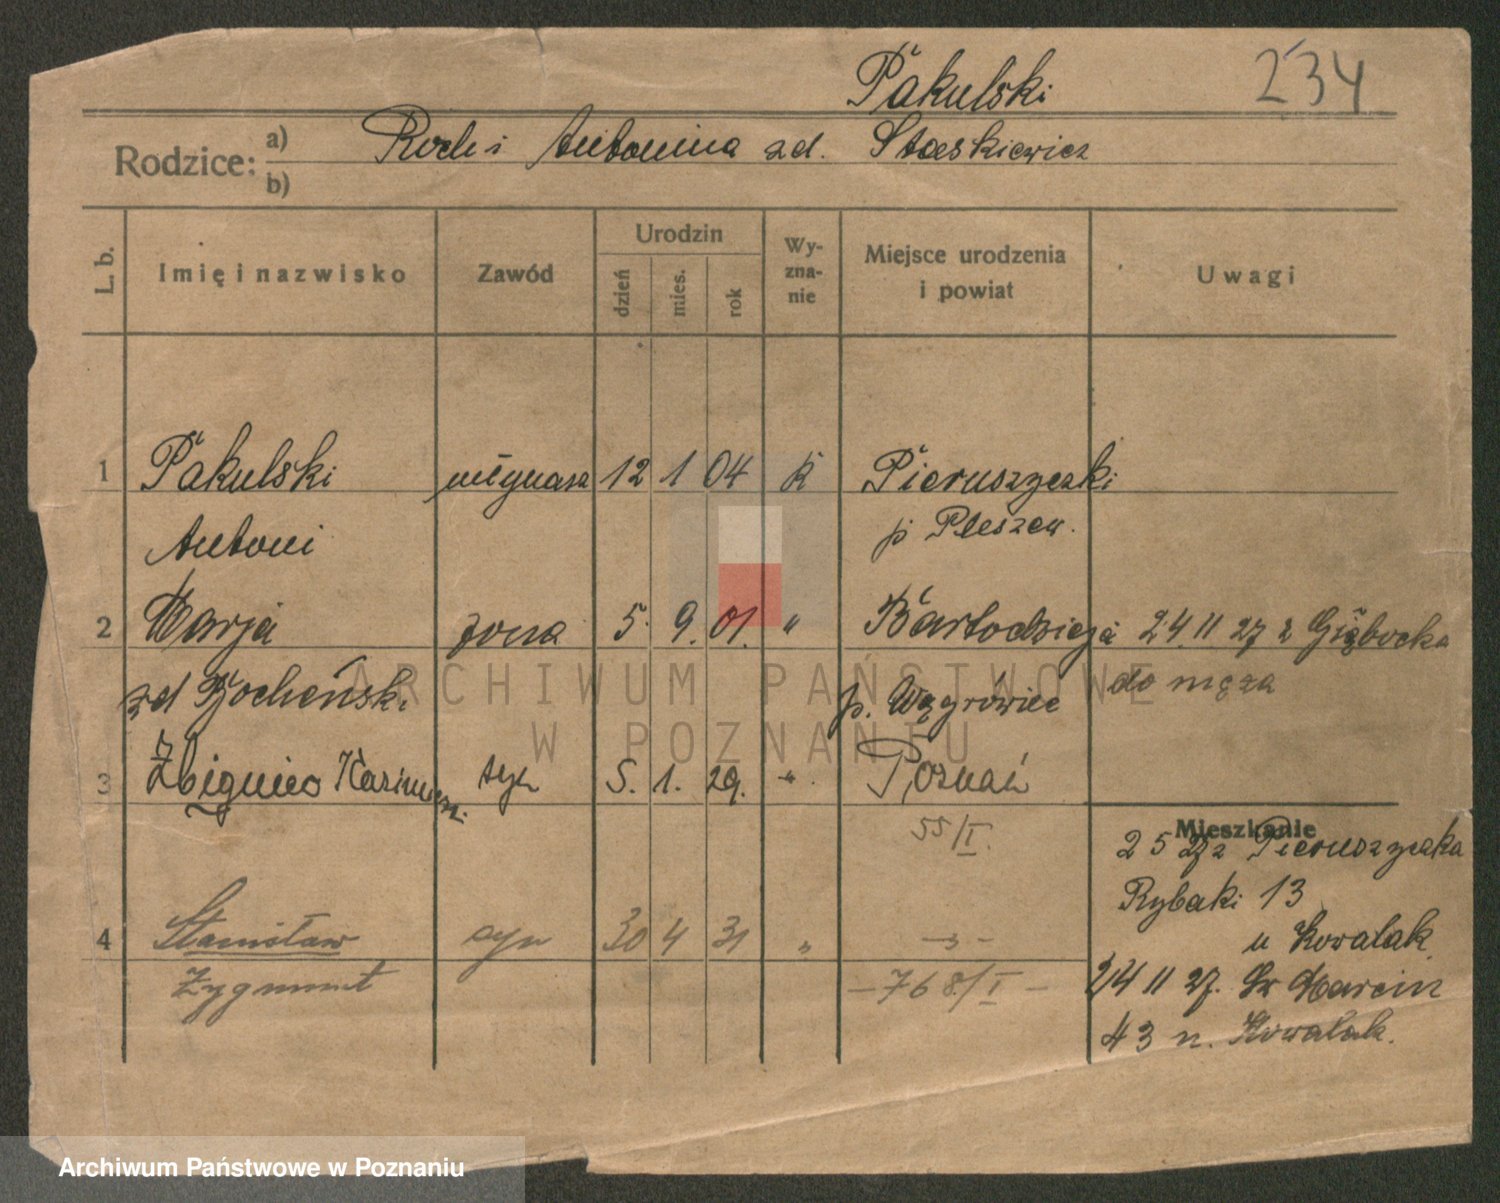 Pakulski 234
Rodzice: a) Roch i Antonina zd. Staśkiewicz
b)
L. b. Imię i nazwisko Zawód Urodzin dzień mies. rok Wyznanie Miejsce urodzenia i powiat Uwagi
1 Pakulski młynarz 12 1 04 K Pieruszyczki
Antoni p Pleszew.
2 Marja żona 5. 9. 01. " Bartodzieja 24 11 27 z Głębocka
zd Bocheński p. Wągrówiec do męża
3 Zbigniew Kazimierz syn 5. 1. 29. " Poznań
55/I.
Mieszkanie
2 5 27 z Pieruszyczka
Rybaki 13
4 Stanisław syn 30 4 31 " u Kowalak
Zygmunt - 768/I - 24 11 27. Św Marcin
43 n. Kowalak.
ARCHIWUM PAŃSTWOWE
W POZNANIU
Archiwum Państwowe w Poznaniu